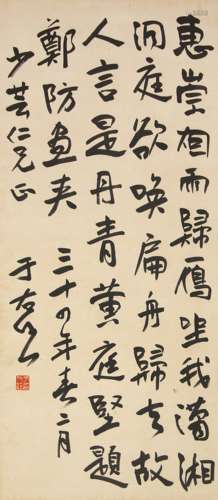 惠崇烟雨歸鴈坐我瀟湘
洞庭欲喚扁舟歸去故
人言是丹青黄庭堅題
鄭防畫夾 三十四年春二月
少芸仁兄正 于右任